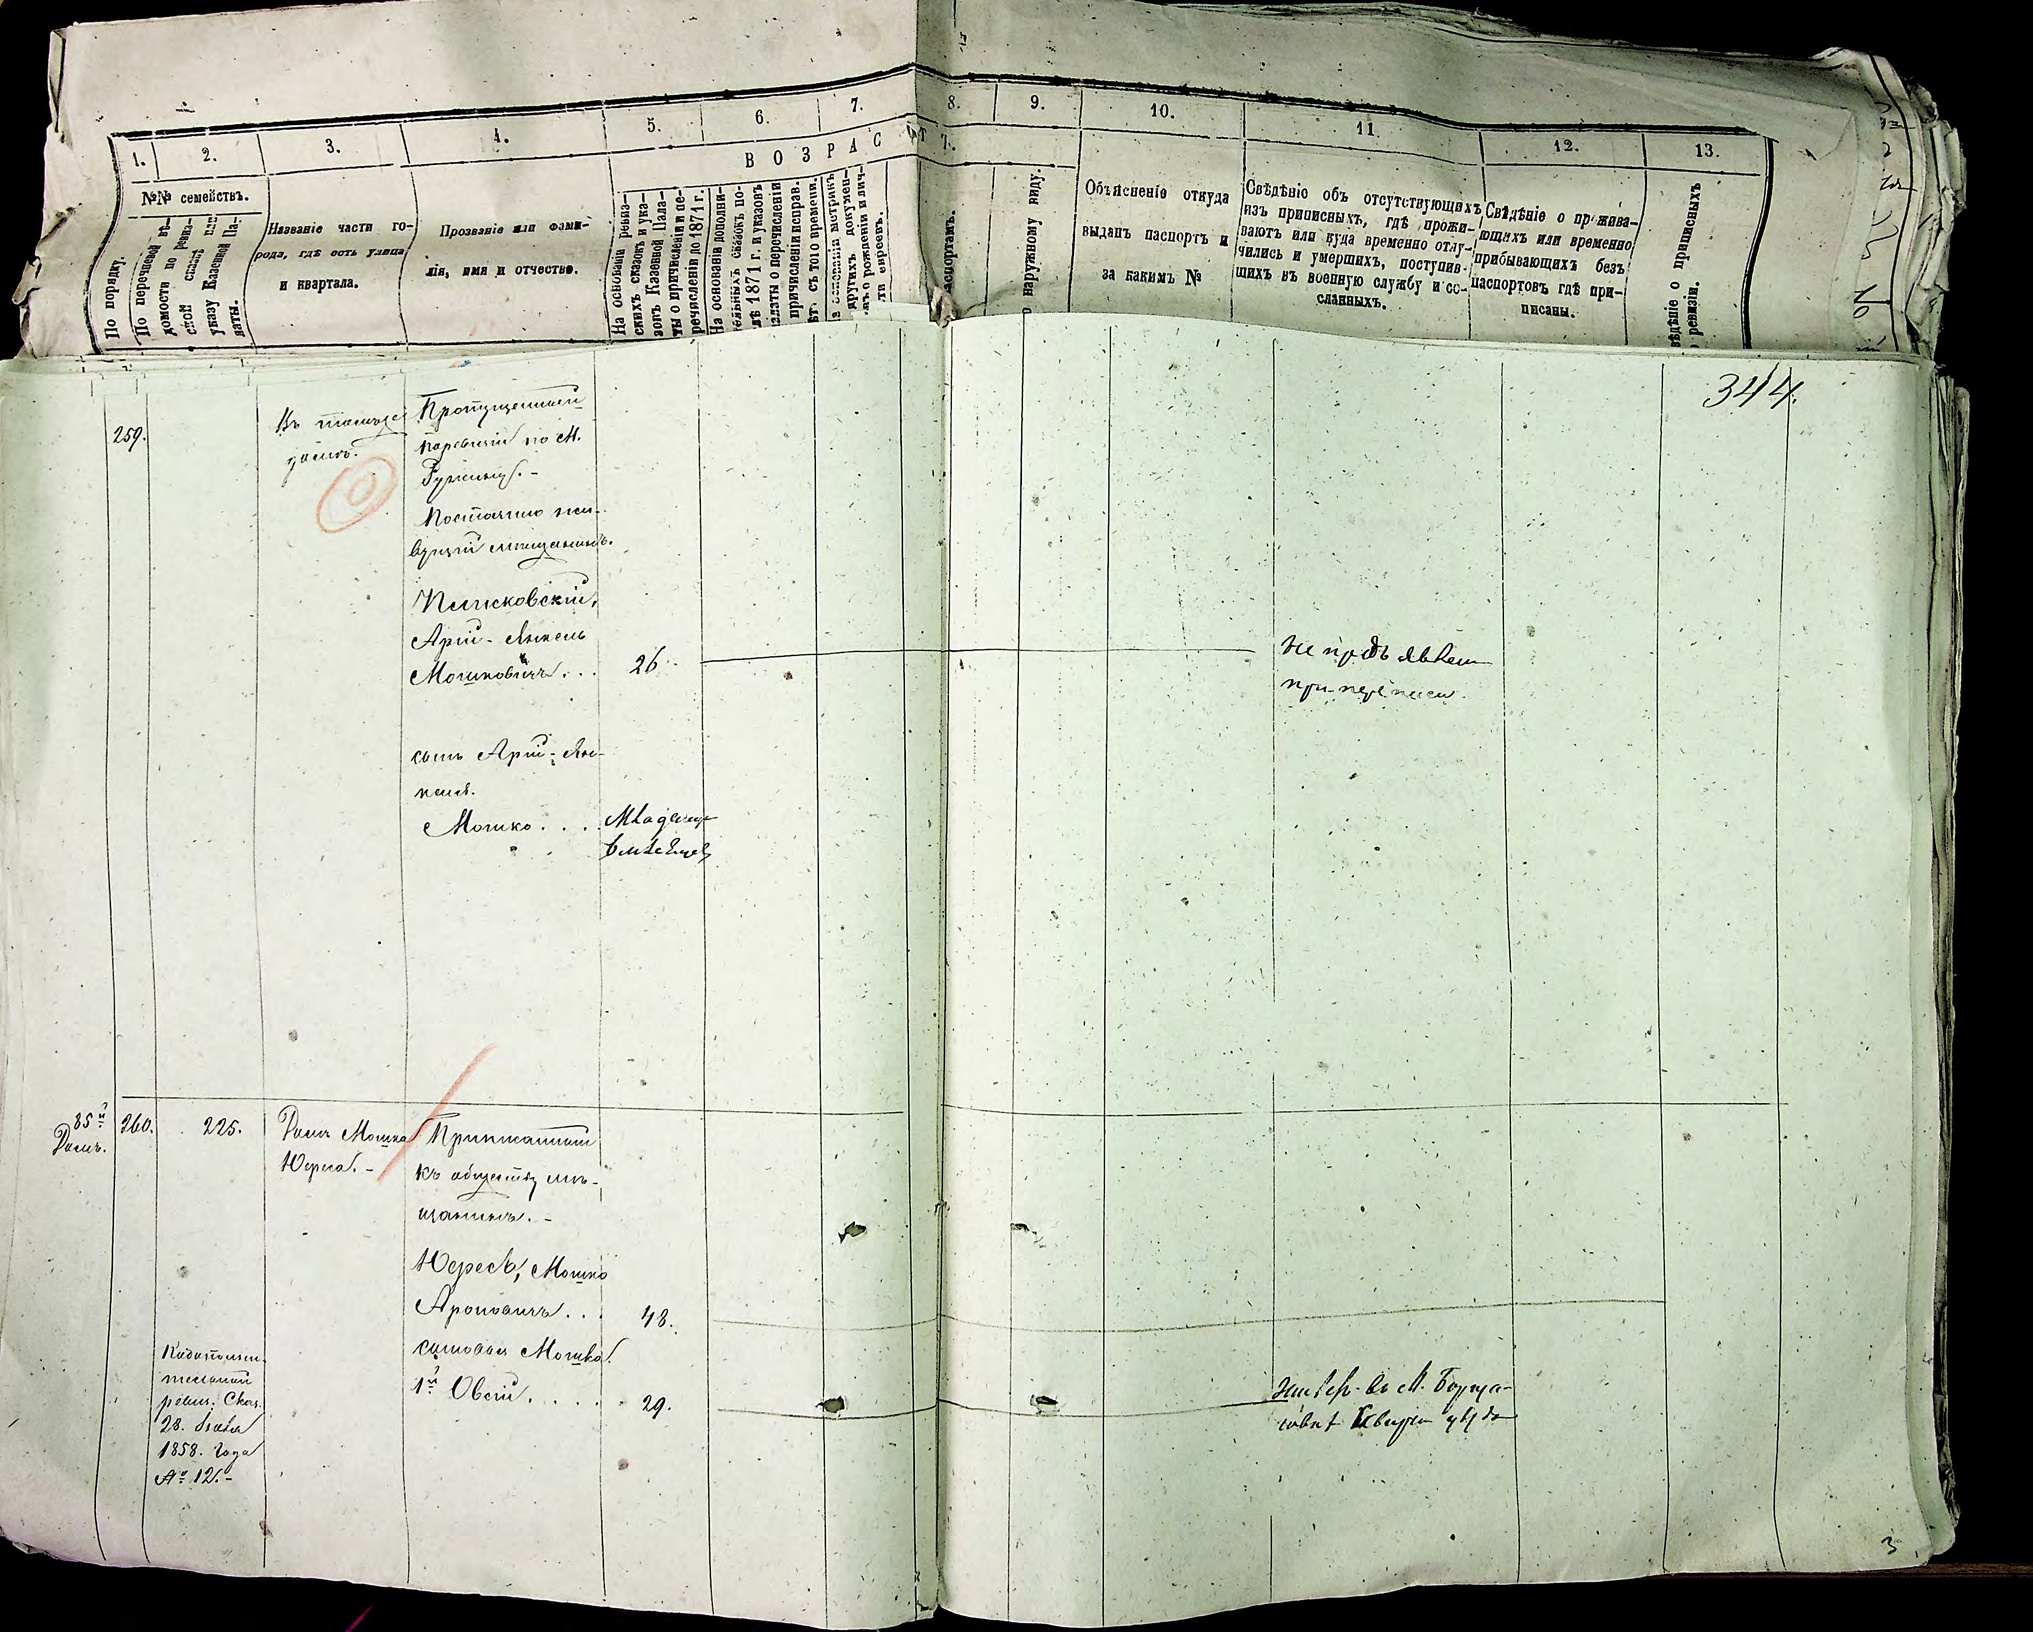 1.
2.
3.
4.
5.
6.
7.
8.
9.
10.
11.
12.
13.
ВОЗРАСТЪ.
№№ семействъ.
По порядку.
По перечневой вѣ-
домости по ревиз-
ской сказкѣ или
указу Казенной Па-
латы.
Названіе части го-
рода, гдѣ есть улица
и квартала.
Прозваніе или фами-
лія, имя и отчество.
На основаніи ревиз-
скихъ сказокъ и ука-
зовъ Казенной Пала-
ты о причисленіи и пе-
речисленіи до 1871 г.
На основаніи дополни-
тельныхъ сказокъ по-
слѣ 1871 г. и указовъ
палаты о перечисленіи
причисленіи исправ.
съ того времени.
основаніи метрикъ
другихъ докумен-
о рожденіи и лич-
ти евреевъ.
паспортамъ.
наружному виду.
Объясненіе откуда
выданъ паспортъ и
за какимъ №
Свѣдѣніе объ отсутствующихъ
изъ приписныхъ, гдѣ прожи-
ваютъ или куда временно отлу-
чились и умершихъ, поступив-
шихъ въ военную службу и сс-
сланныхъ.
Свѣдѣніе о прожива-
ющихъ или временно
прибывающихъ безъ
паспортовъ гдѣ при-
писаны.
вѣдѣніе о приписныхъ
ревизіи.
344.
259.
Въ томъ же
домѣ.
Пропущенный
по ревизіи по М.
Ружину. -
Постоянно жи-
вущій мѣщанинъ.
Арій-Янкель
Мошковичъ . . .
26.
не предъявленъ
при переписи.
сынъ Арій-Ян-
келя.
Мошко . . .
Младенец
85й
Домъ.
260.
225.
Домъ Мошка
Приписанный
къ обществу мѣ-
щанинъ. -
Мошко
Ароновичъ . . .
48.
сыновья Мошка.
1й Овсій . . . .
29.
По дополни-
тельной
ревиз. Сказ.
28.
1858. Года
№ 12. -
3